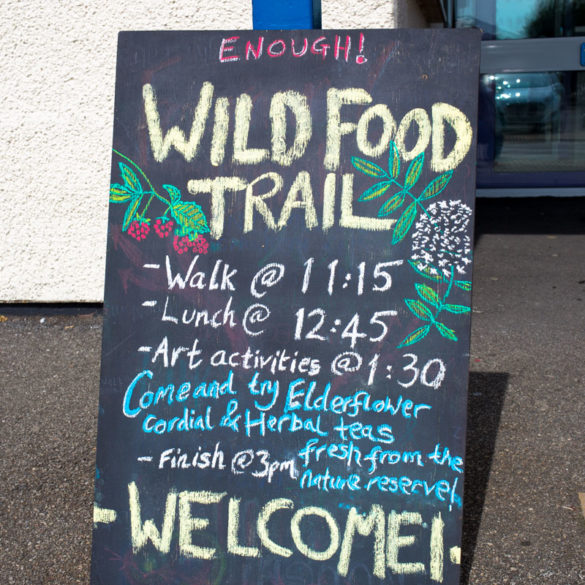 ENOUGH!
WILD FOOD
TRAIL
- Walk @ 11:15
- Lunch @ 12:45
- Art activities @ 1:30
Come and try Elderflower
cordial & Herbal teas
fresh from the
nature reserve!
- Finish @ 3pm
- WELCOME!